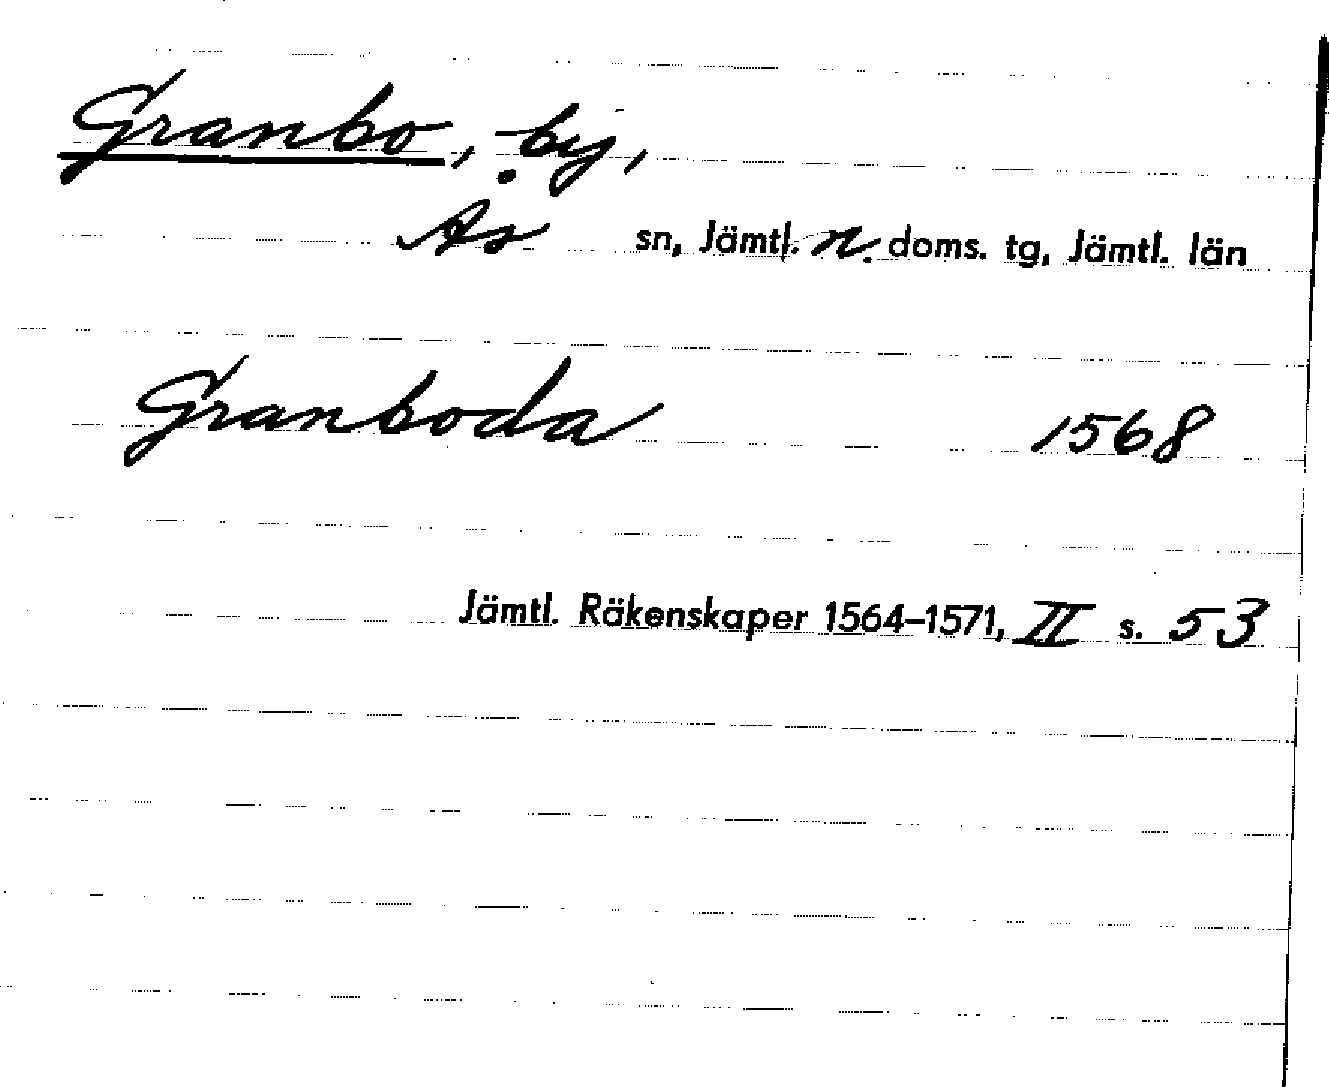 Granbo, by,
Ås sn, Jämtl. n. doms. tg, Jämtl. län
Granboda 1568
Jämtl. Räkenskaper 1564–1571, II s. 53